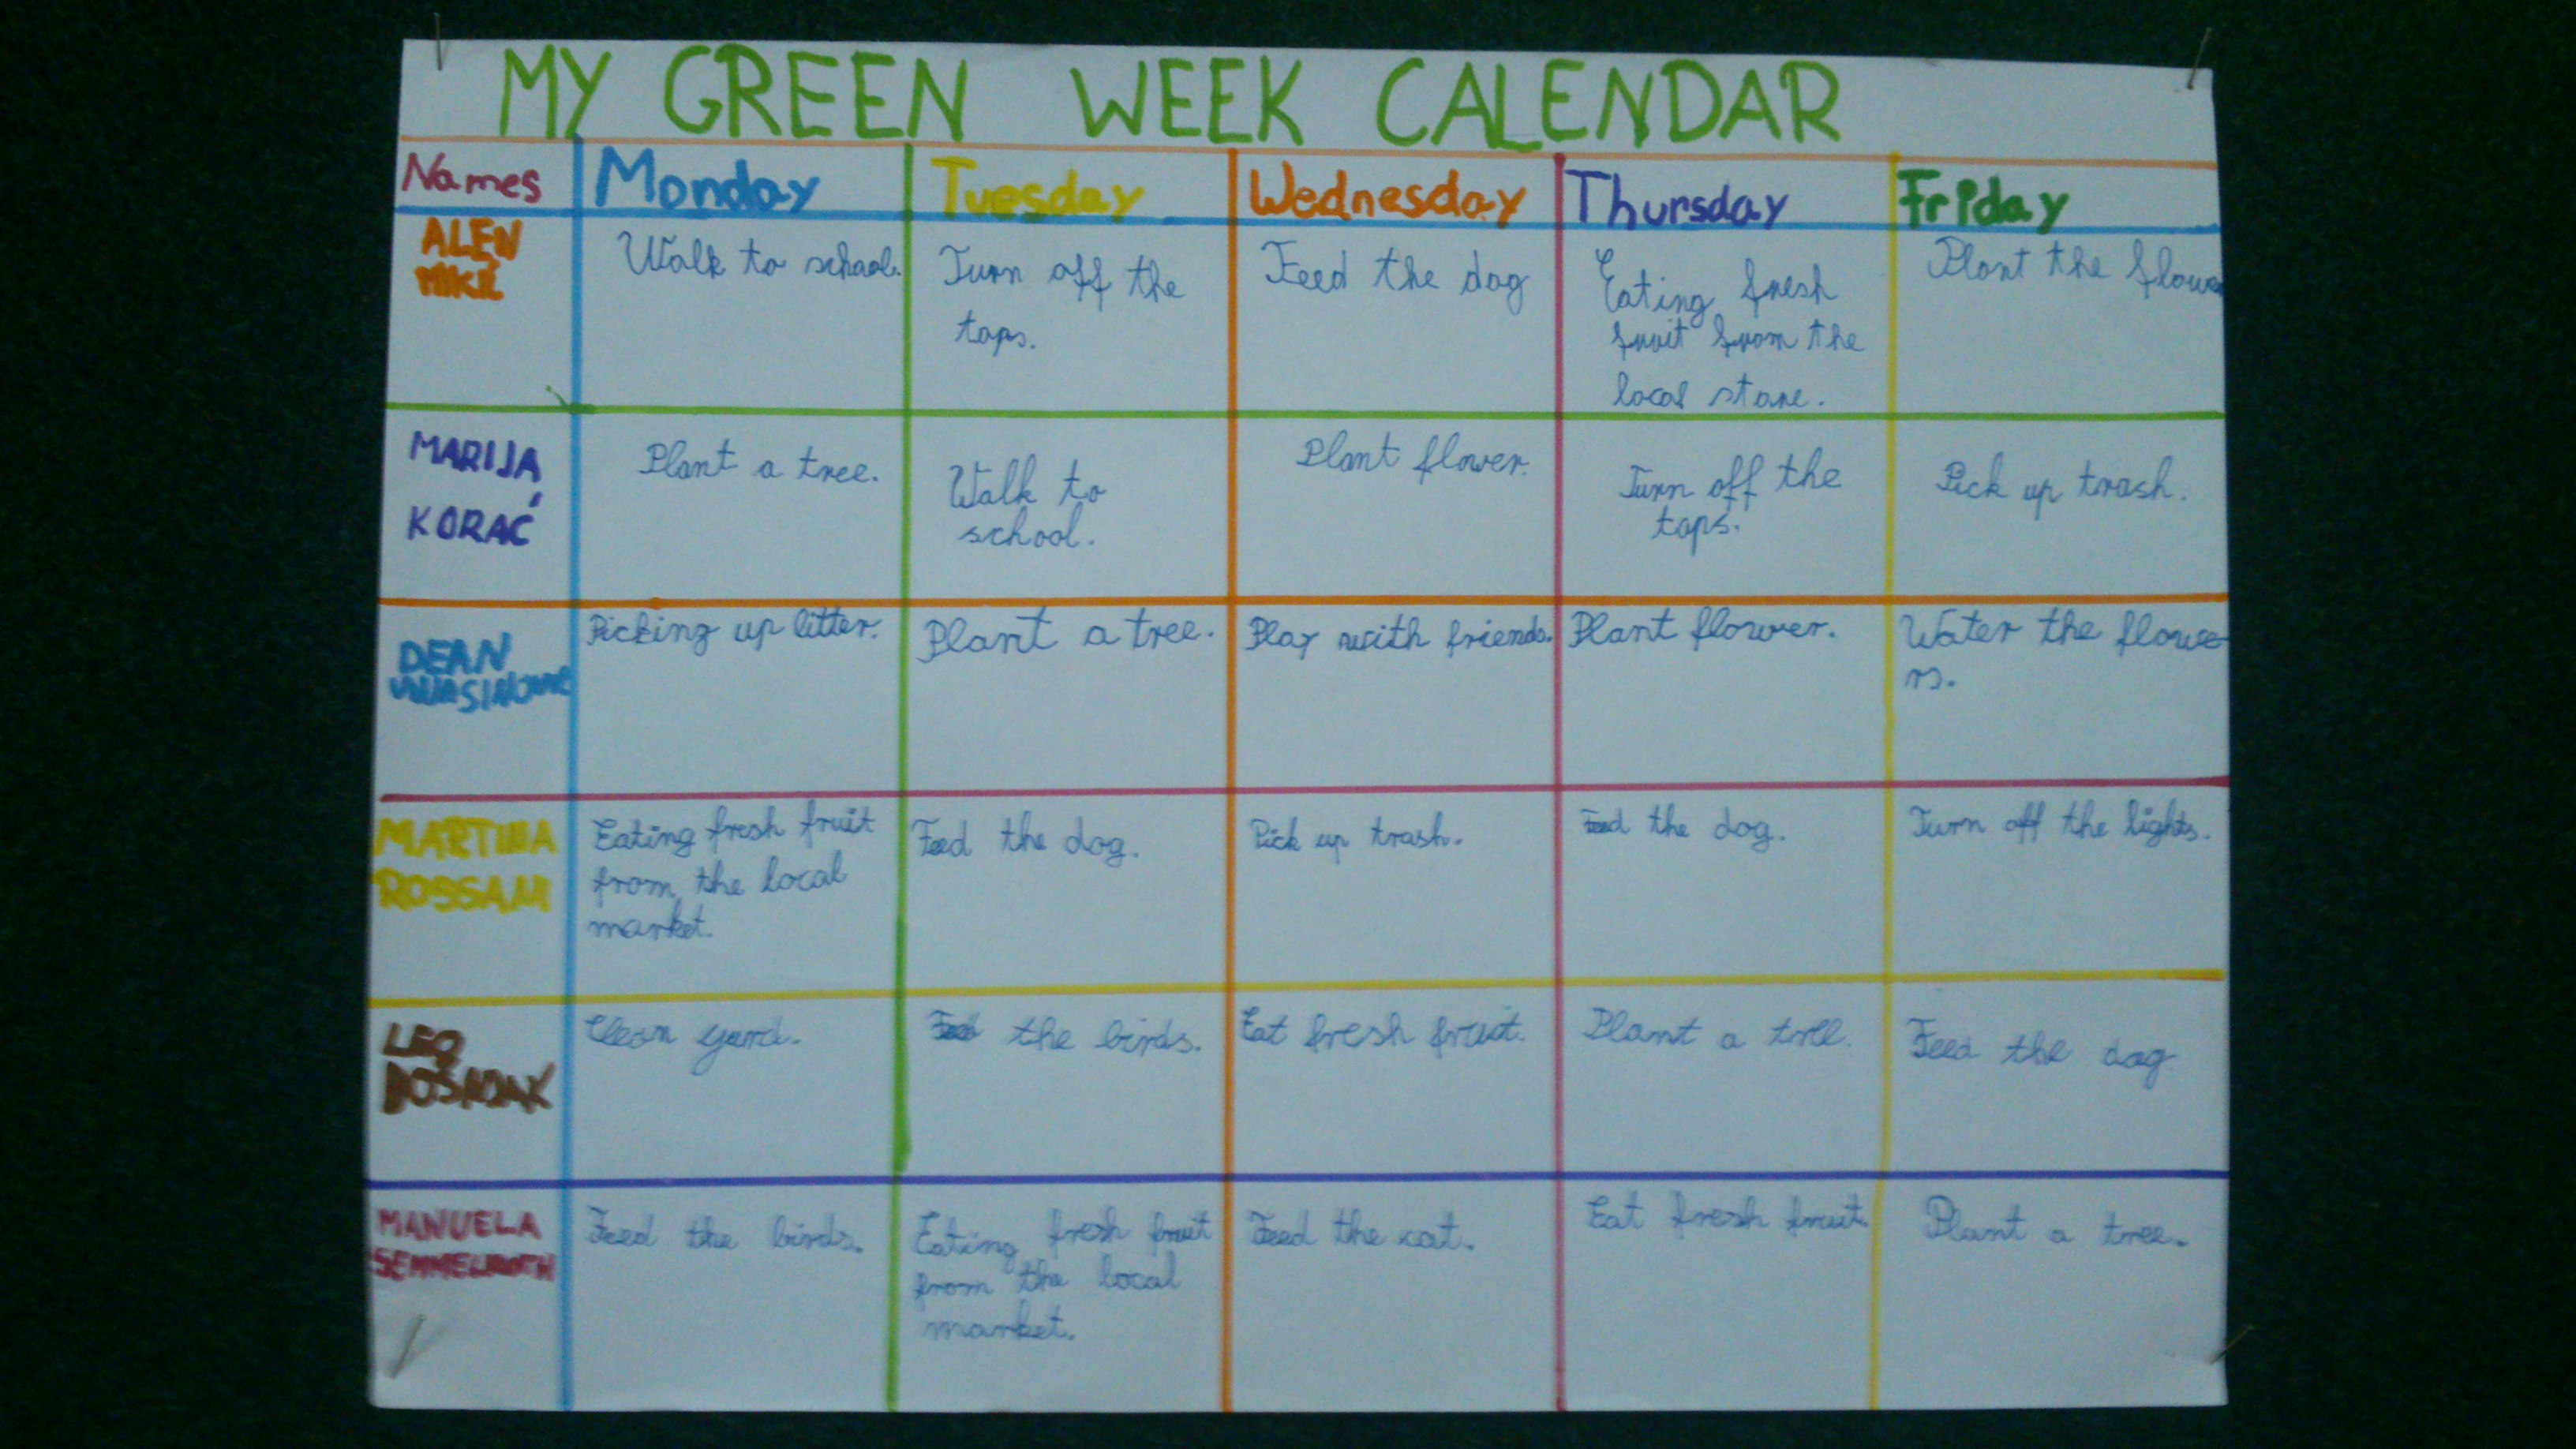 MY GREEN WEEK CALENDAR
Names Monday Tuesday Wednesday Thursday Friday
ALEN
Walk to school.
Turn off the
taps.
Feed the dog
Eating fresh
fruit from the
local store.
Plant the flower
MARIJA
KORAĆ
Plant a tree.
Walk to
school.
Plant flower.
Turn off the
taps.
Pick up trash.
DEAN
Picking up litter.
Plant a tree.
Play with friends.
Plant flower.
Water the flowe
rs.
MARTINA
ROSSANI
Eating fresh fruit
from the local
market.
Feed the dog.
Pick up trash.
Feed the dog.
Turn off the lights.
LEO
BOŠNJAK
Clean yard.
Feed the birds.
Eat fresh fruit.
Plant a tree.
Feed the dog.
MANUELA
SEMMELROTH
Feed the birds.
Eating fresh fruit
from the local
market.
Feed the cat.
Eat fresh fruit.
Plant a tree.